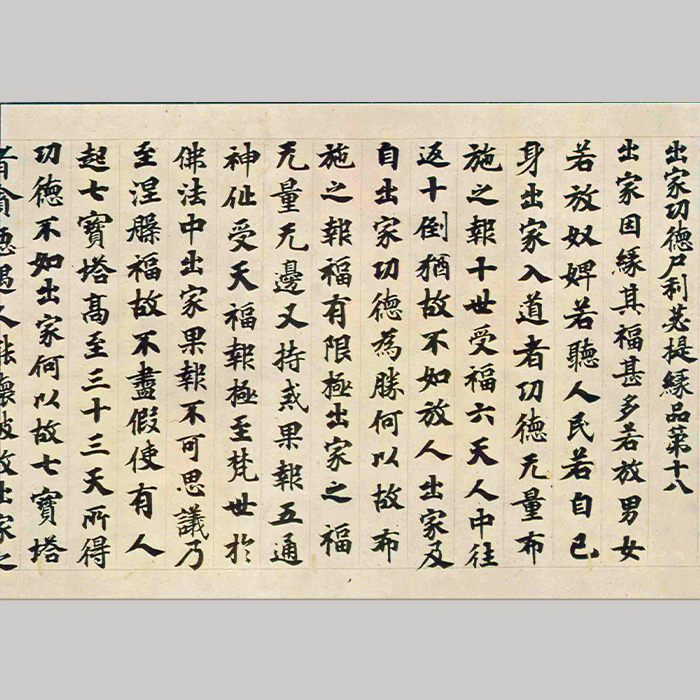 出家功德尸利苾提縁品第十八
出家因縁其福甚多若放男女
若放奴婢若聽人民若自己
身出家入道者功德无量布
施之報十世受福六天人中往
返十倒猶故不如放人出家及
自出家功德為勝何以故布
施之報福有限極出家之福
无量无邊又持戒果報五通
神仙受天福報極至梵世於
佛法中出家果報不可思議乃
至涅槃福故不盡假使有人
起七寶塔高至三十三天所得
功德不如出家何以故七寶塔
者貪惡愚人能壞破故出家之